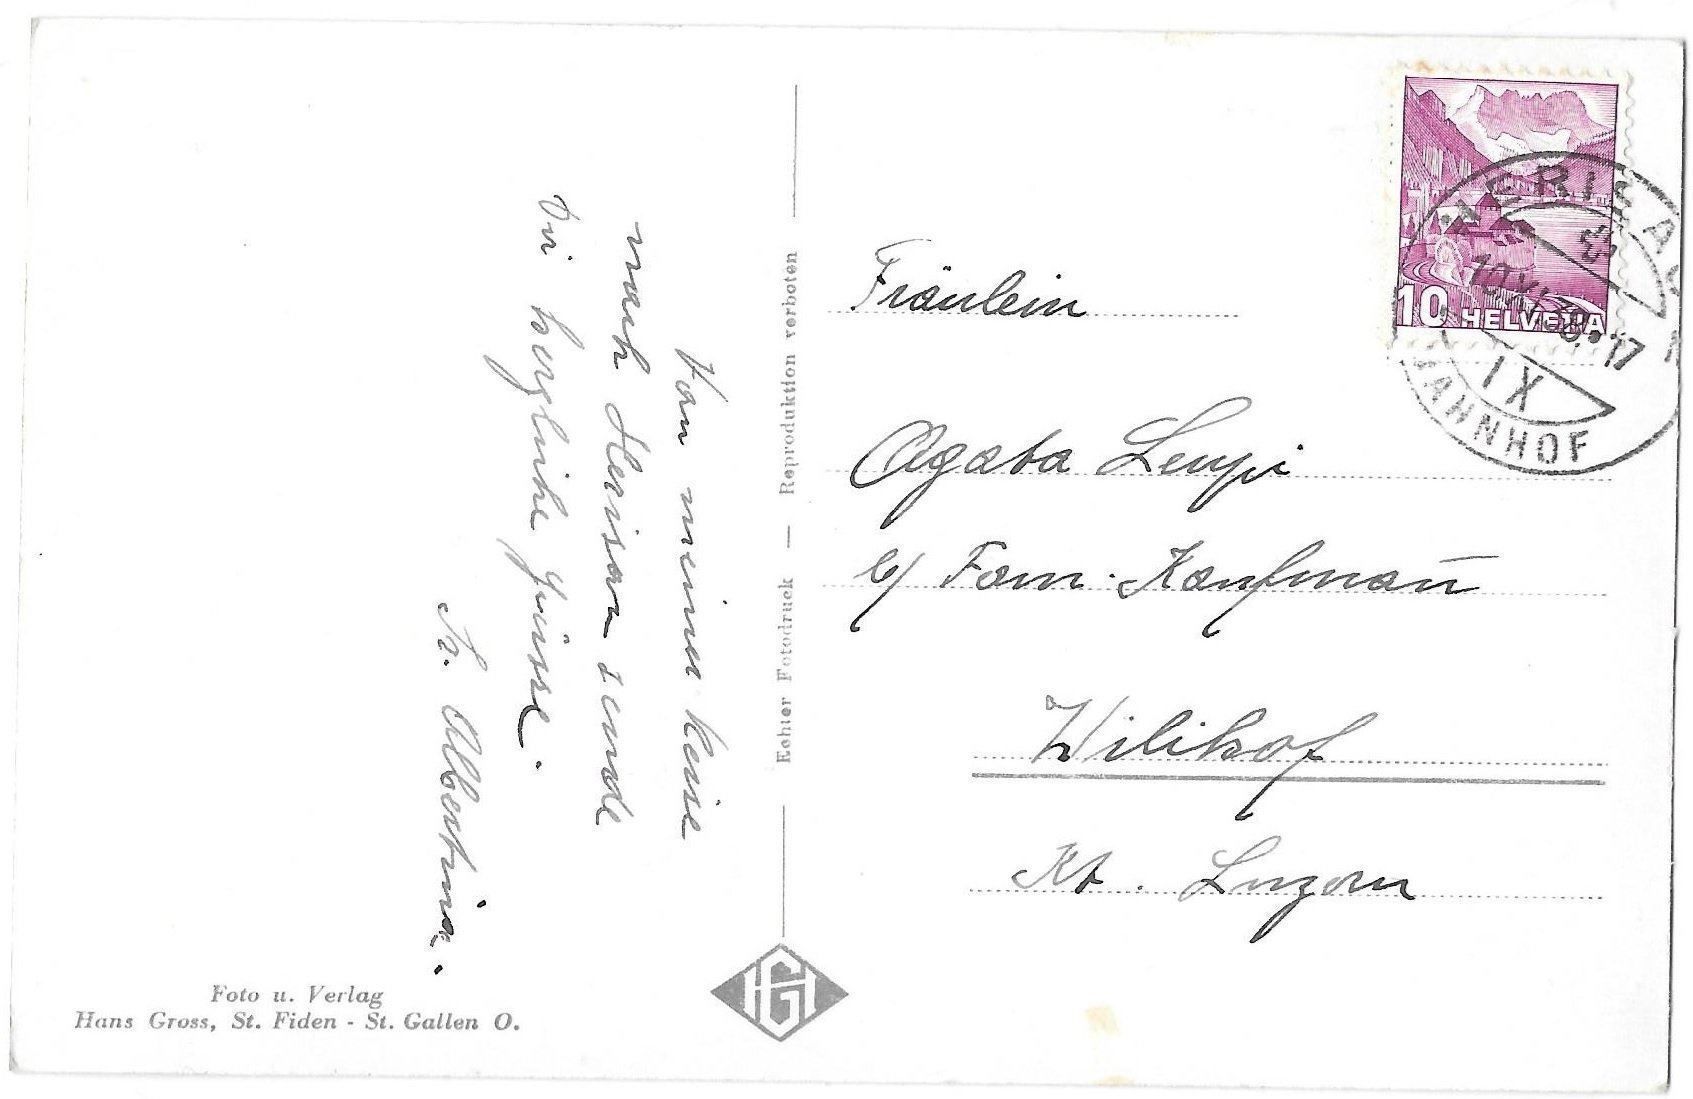 Von meiner Reise
nach Herisau sende
Dir herzliche Grüsse.
Sr. Albertina.
Foto u. Verlag
Hans Gross, St. Fiden - St. Gallen O.
Echter Fotodruck — Reproduktion verboten
HG
10 HELVETIA
HERISAU 1
10.V 38.-17
IX
BAHNHOF
Fräulein
Agatha Leupi
b/ Fam. Kaufman̄
Wilihof
Kt. Luzern